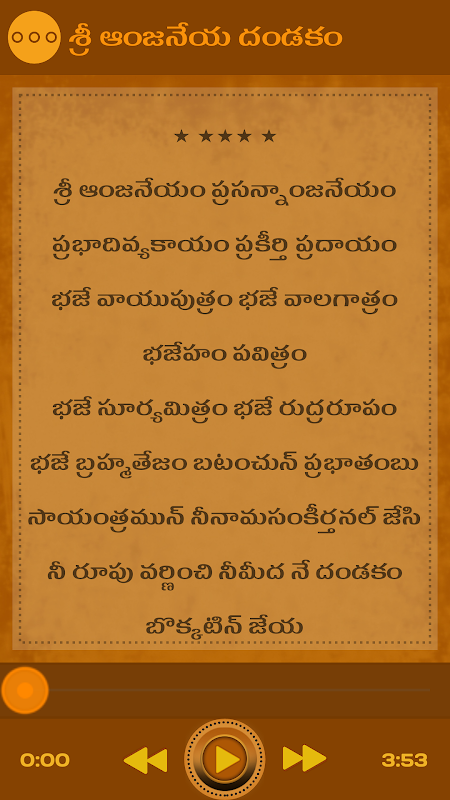 శ్రీ ఆంజనేయ దండకం
★ ★★★ ★
శ్రీ ఆంజనేయం ప్రసన్నాంజనేయం
ప్రభాదివ్యకాయం ప్రకీర్తి ప్రదాయం
భజే వాయుపుత్రం భజే వాలగాత్రం
భజేహం పవిత్రం
భజే సూర్యమిత్రం భజే రుద్రరూపం
భజే బ్రహ్మతేజం బటంచున్ ప్రభాతంబు
సాయంత్రమున్ నీనామసంకీర్తనల్ జేసి
నీ రూపు వర్ణించి నీమీద నే దండకం
బొక్కటిన్ జేయ
0:00
3:53